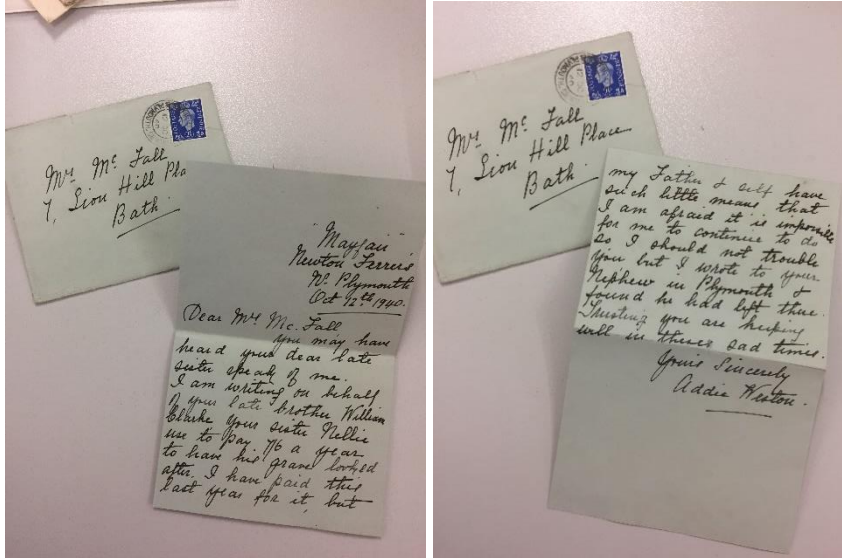 Mrs Mc Fall
7, Lion Hill Pla
Bath.
Mayfair
Newton Ferrers
Nr Plymouth
Oct 12th 1940.
Dear Mrs Mc. Fall
you may have
heard your dear late
sister speak of me.
I am writing on behalf
of your late brother William
Clarke your sister Nellie
use to pay 7/6 a year
to have his grave looked
after. I have paid this
last year for it, but
Mrs Mc Fall
7, Lion Hill Place
Bath.
my Father & self have
such little means that
I am afraid it is impossible
for me to continue to do
so I should not trouble
you but I wrote to your
Nephew in Plymouth &
found he had left there.
Trusting you are keeping
well in theses sad times.
Yours Sincerely
Addie Weston.